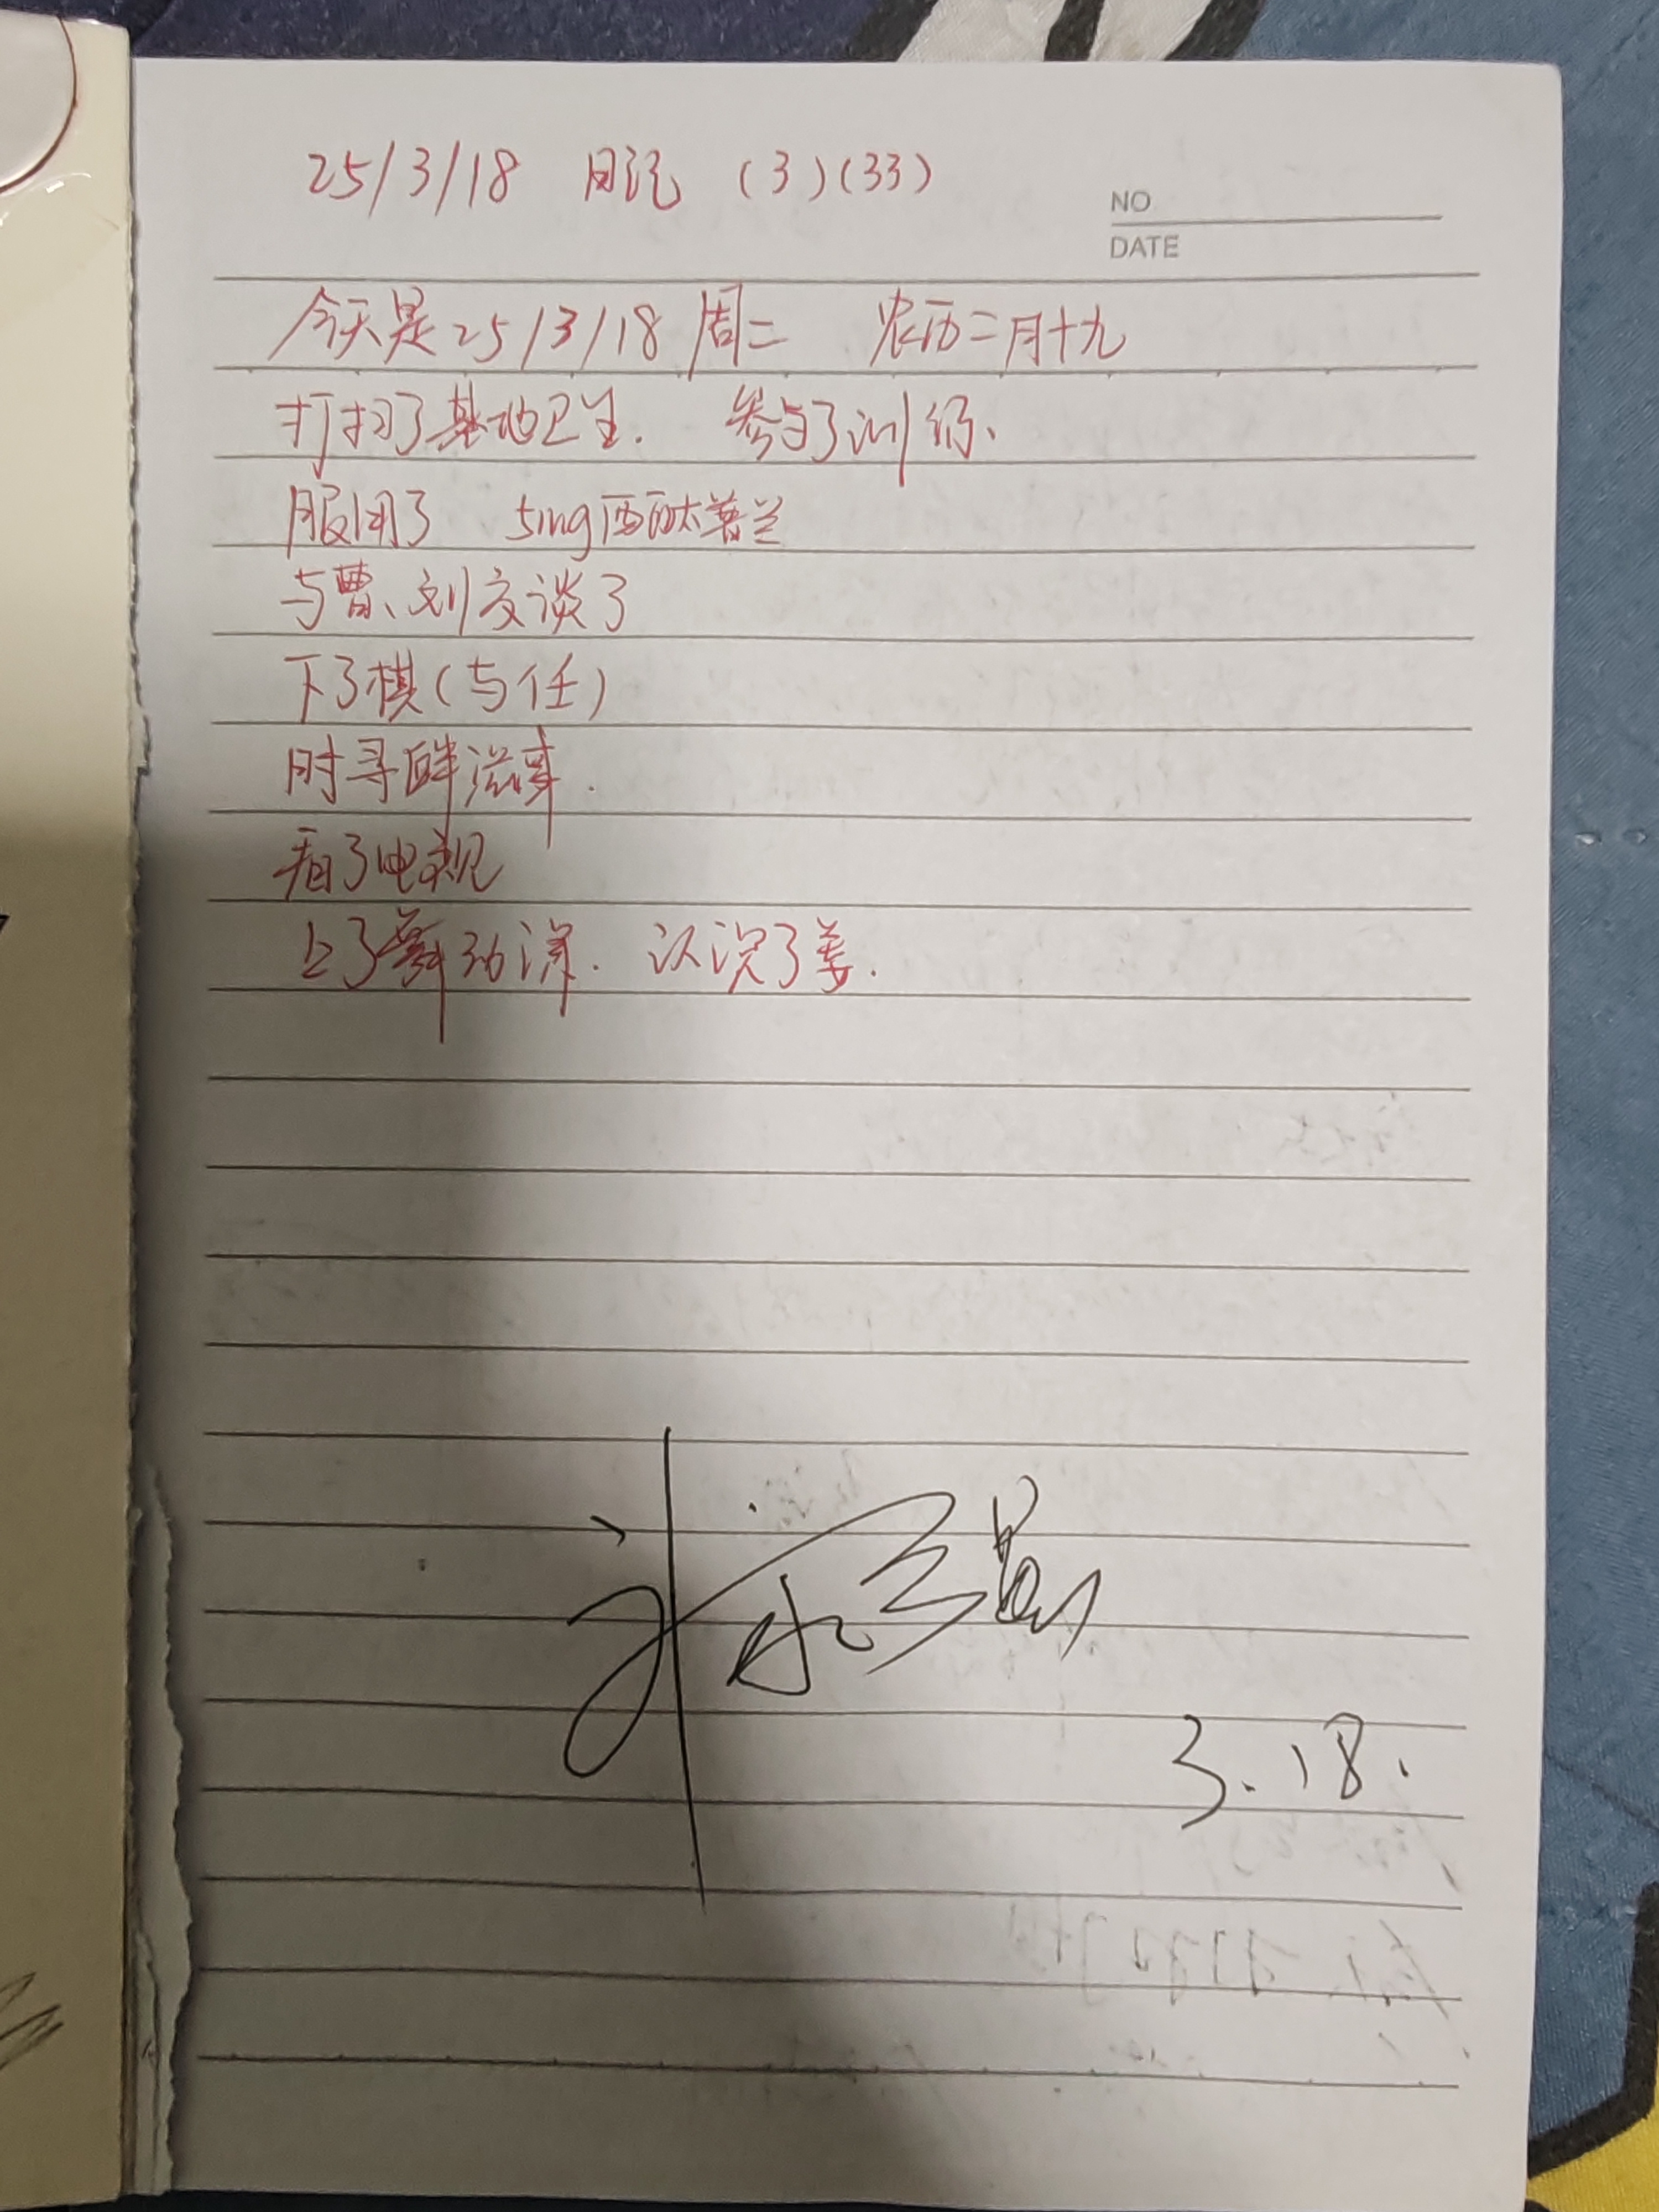 25/3/18 日记 (3)(33)
NO
DATE
今天是25/3/18 周二 农历二月十九
打扫了基地卫生. 参与了训练、
服用了 5mg西酞普兰
与曹、刘交谈了
下了棋(与任)
时寻衅滋事.
看了电视
上了舞动课. 认识了姜.
3.18.